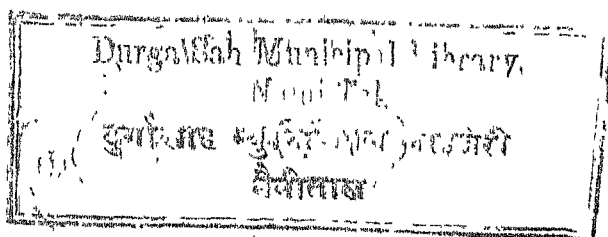 Durga Sah Municipal Library,
Naini Tal
दुर्गासाह म्युनिसिपल लाइब्रेरी
नैनीताल